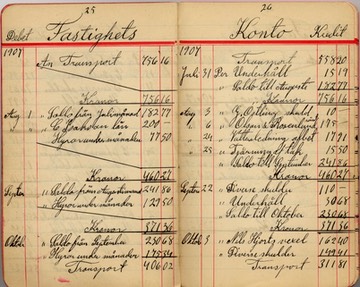 25
Debet Fastighets
1907
An Transport 756 16
Kronor 756 16
Aug 1 " Saldo från Julimånad 182 77
" C. Isakson lån 200 -
" Hyror under månaden 77 50
Kronor 460 27
Septbr " Saldo från Augustimånad 241 86
" Hyror under månaden 129 50
Kronor 371 36
Oktob. " Saldo från September 230 68
" Hyror under månaden 175 34
Transport 406 02
26
Konto Kredit
1907
Transport 558 20
Juli 31 Per Underhåll 15 19
" Saldo till Augusti 182 77
Kronor 756 16
Aug 3 " G. Östling skuld 10 -
" " 195 -
" Vattenledning 17 91
" 25 " 15 50
" Saldo till September 241 86
Kronor 460 27
Septbr 22 " Diverse skulder 110 -
" Underhåll 30 68
" Saldo till Oktober 230 68
Kronor 371 36
Oktob. 5 " Nils Hjorts vexel 162 40
" Diverse skulder 149 41
Transport 311 81